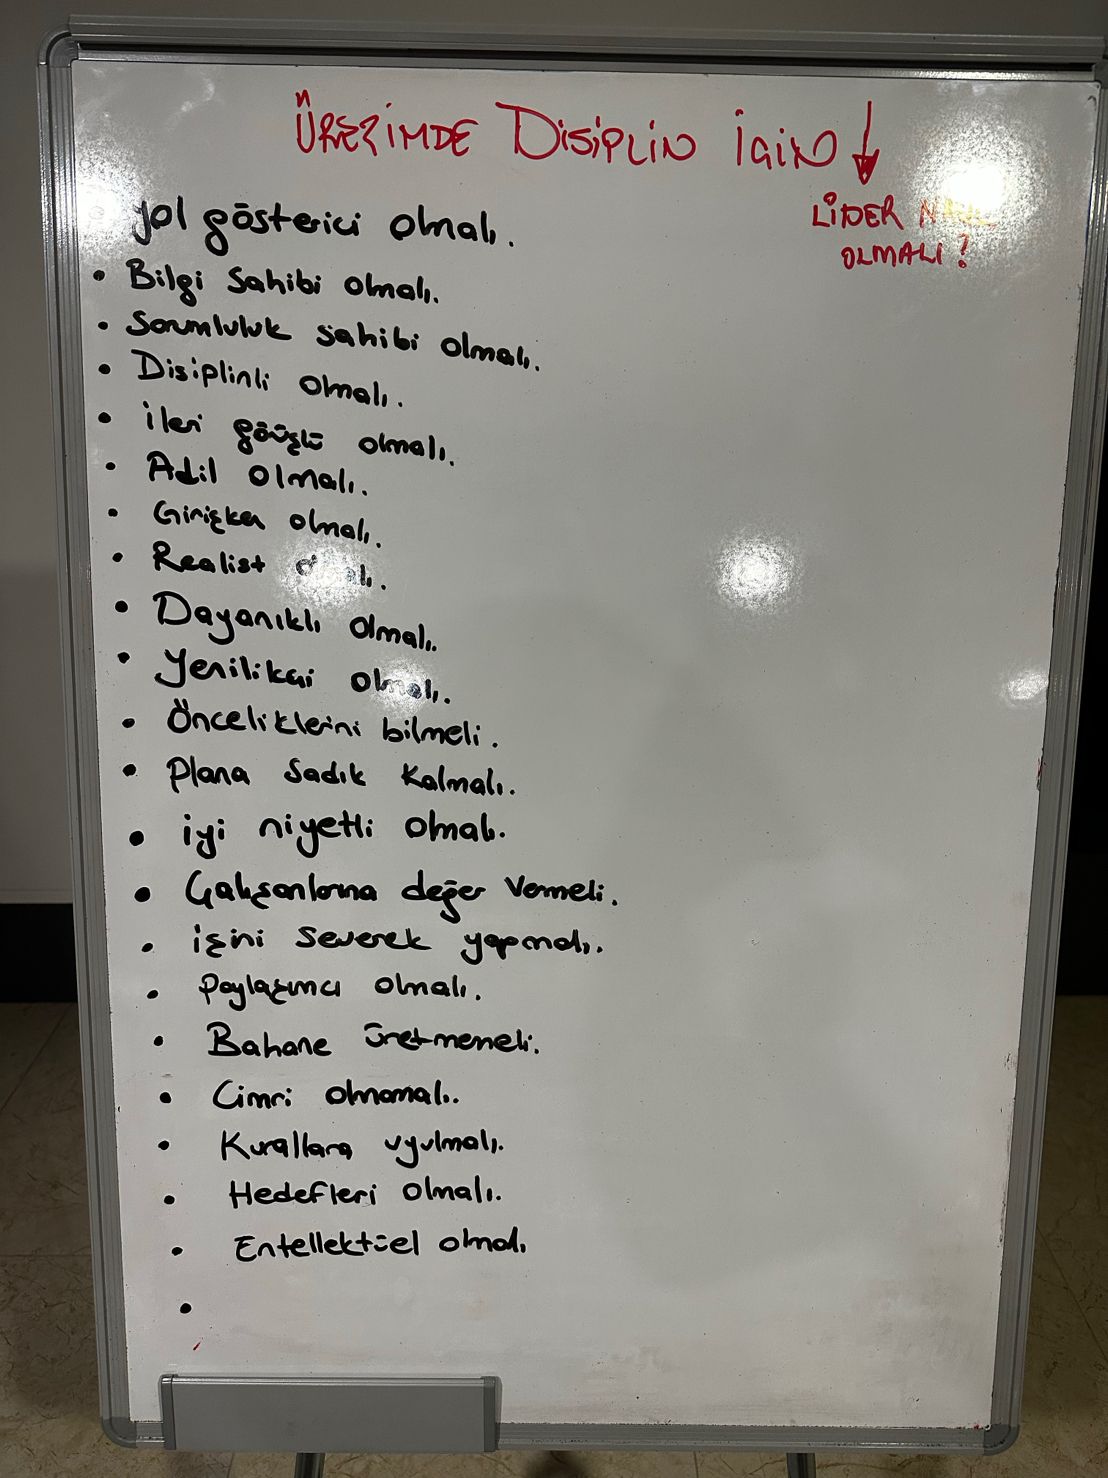 ÜRETİMDE DİSİPLİN İÇİN ↓
LİDER NASIL
OLMALI?
yol gösterici olmalı.
• Bilgi sahibi olmalı.
• Sorumluluk sahibi olmalı.
• Disiplinli olmalı.
• ileri görüşlü olmalı.
• Adil olmalı.
• Girişken olmalı.
• Realist olmalı.
• Dayanıklı olmalı.
• Yenilikçi olmalı.
• Önceliklerini bilmeli.
• Plana Sadık kalmalı.
• iyi niyetli olmalı.
• Çalışanlarına değer vermeli.
• işini severek yapmalı.
• Paylaşımcı olmalı.
• Bahane üretmemeli.
• Cimri olmamalı.
• Kurallara uyulmalı.
• Hedefleri olmalı.
• Entellektüel olmalı
•